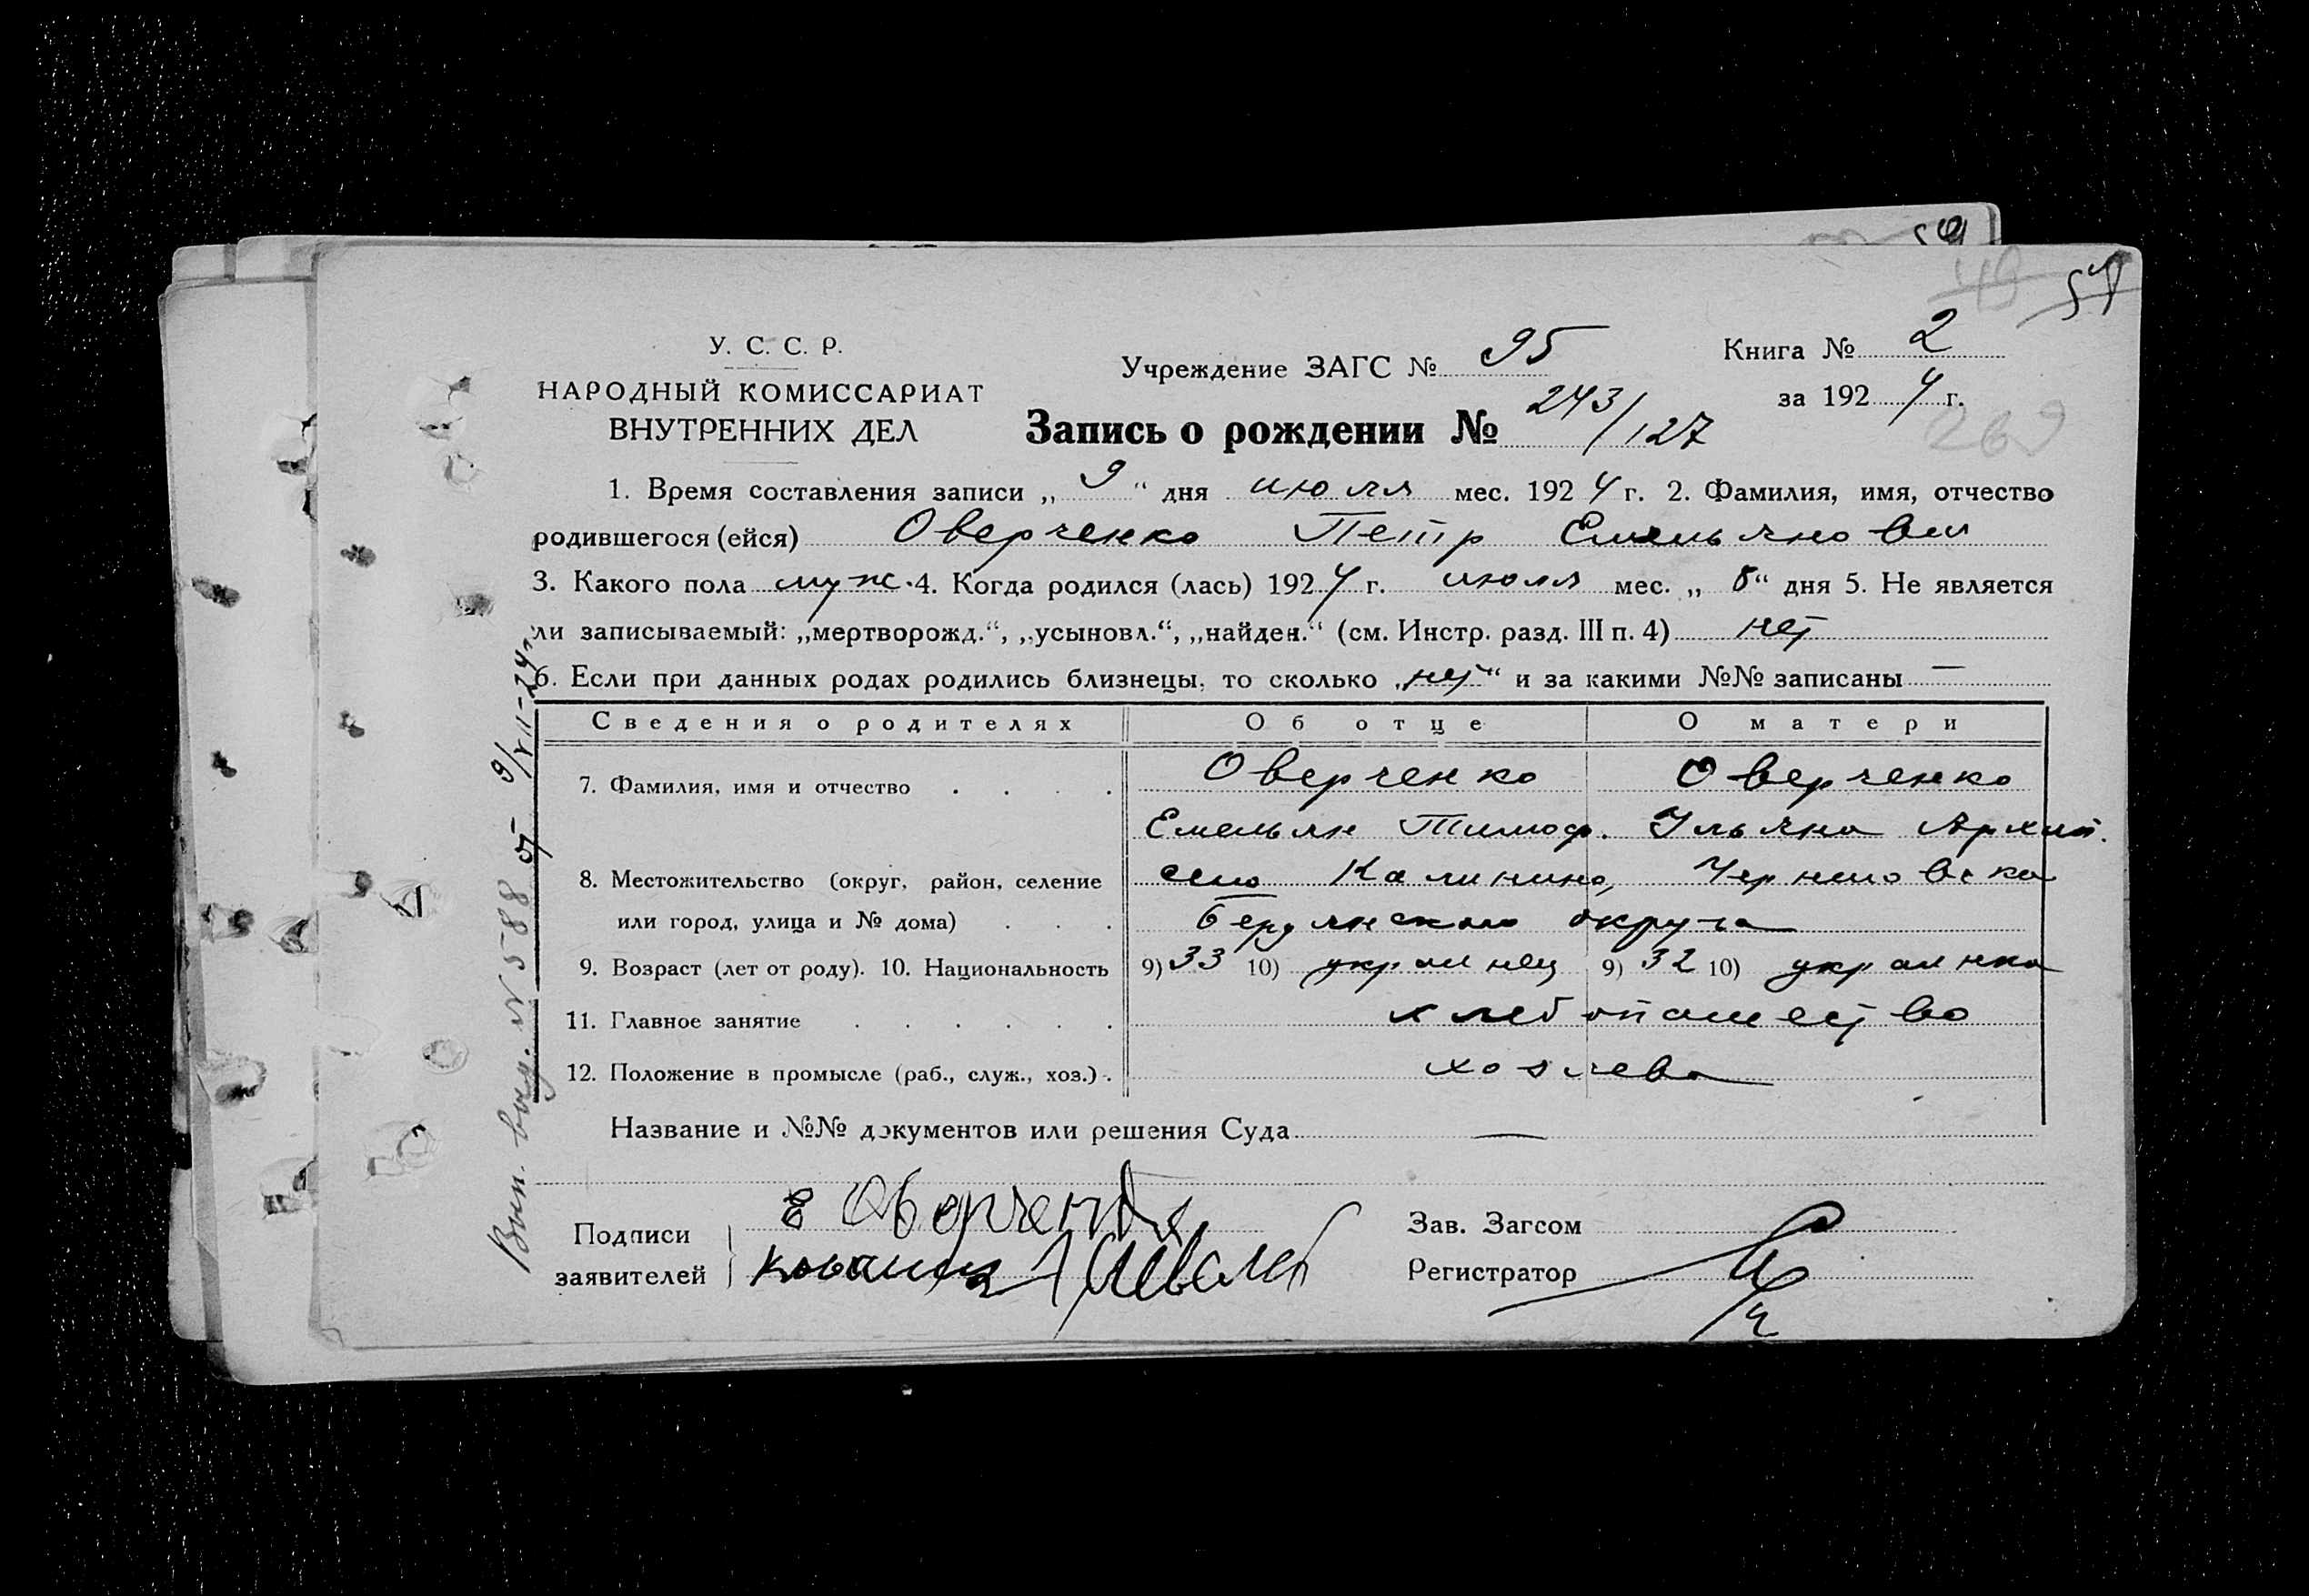 59
49 58
У. С. С. Р.
НАРОДНЫЙ КОМИССАРИАТ
ВНУТРЕННИХ ДЕЛ
Учреждение ЗАГС № 95
Книга № 2
за 1924 г.
Запись о рождении № 243/127
269
1. Время составления записи „9“ дня июля мес. 1924 г. 2. Фамилия, имя, отчество
родившегося (ейся) Оверченко Петр Емельянович
3. Какого пола муж. 4. Когда родился (лась) 1924 г. июля мес. „8“ дня 5. Не является
ли записываемый: „мертворожд.“, „усыновл.“, „найден.“ (см. Инстр. разд. III п. 4) нет
6. Если при данных родах родились близнецы, то сколько „нет“ и за какими №№ записаны —
Сведения о родителях Об отце О матери
7. Фамилия, имя и отчество . . . . Оверченко Оверченко
Емельян Тимоф. Ульяна Архип.
8. Местожительство (округ, район, селение село Калинино,
или город, улица и № дома) . . . Бердянского округа
9. Возраст (лет от роду). 10. Национальность 9) 33 10) украинец 9) 32 10) украинка
11. Главное занятие . . . . . . хлебопашество
12. Положение в промысле (раб., служ., хоз.) . хозяева
Название и №№ документов или решения Суда —
Подписи
заявителей
Е Оверченко
Зав. Загсом
Регистратор
Вып. выд. № 588 от 9/VII-24 г.